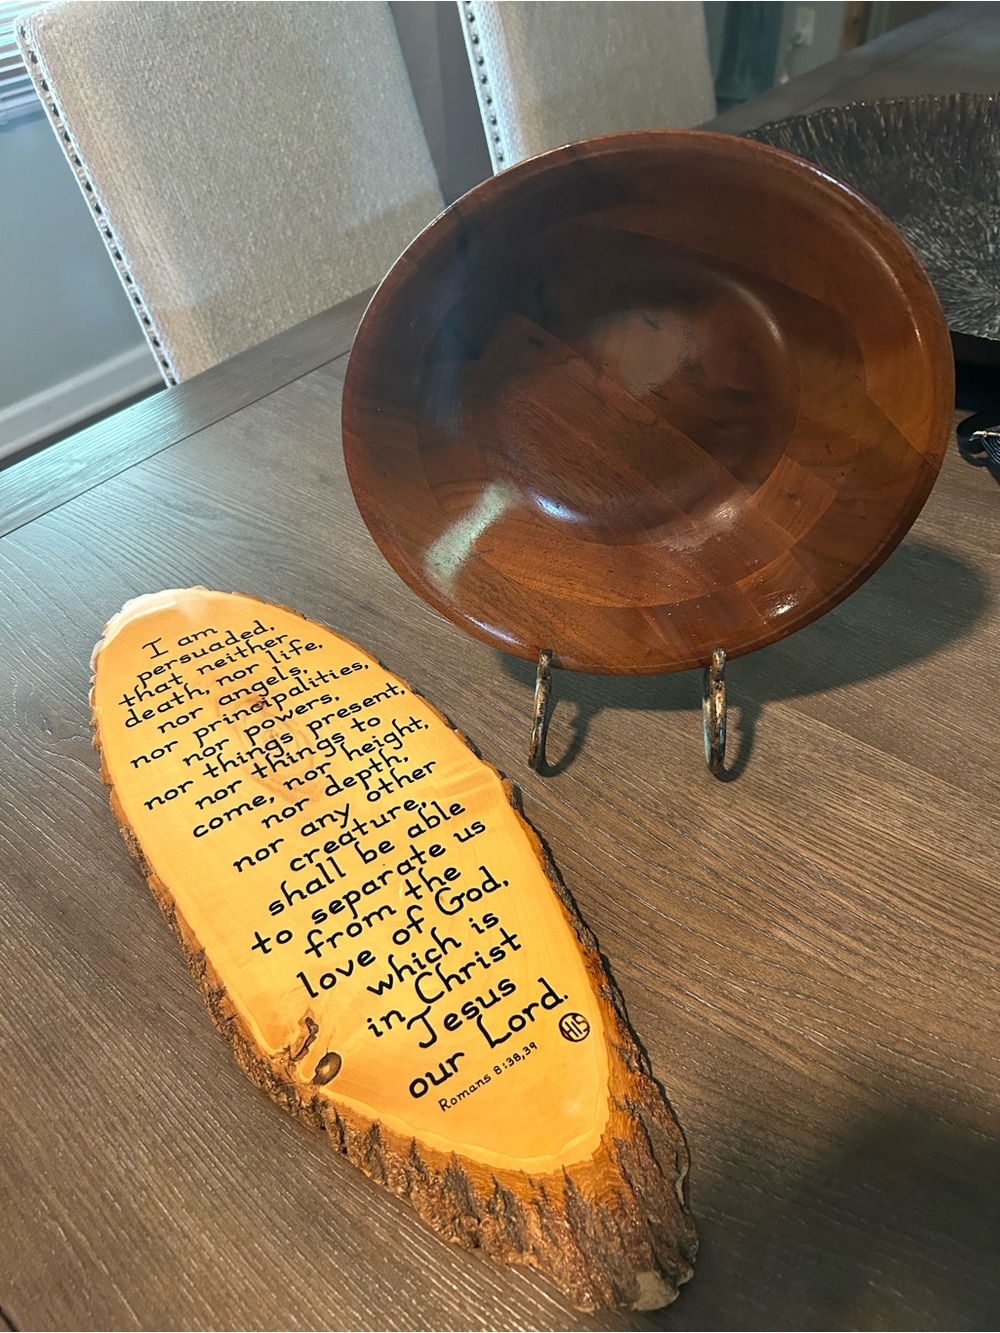 I am
persuaded,
that neither
death, nor life,
nor angels,
nor principalities,
nor powers,
nor things present,
nor things to
come, nor height,
nor depth,
nor any other
creature,
shall be able
to separate us
from the
love of God,
which is
in Christ
Jesus
our Lord.
HIS
Romans 8:38,39